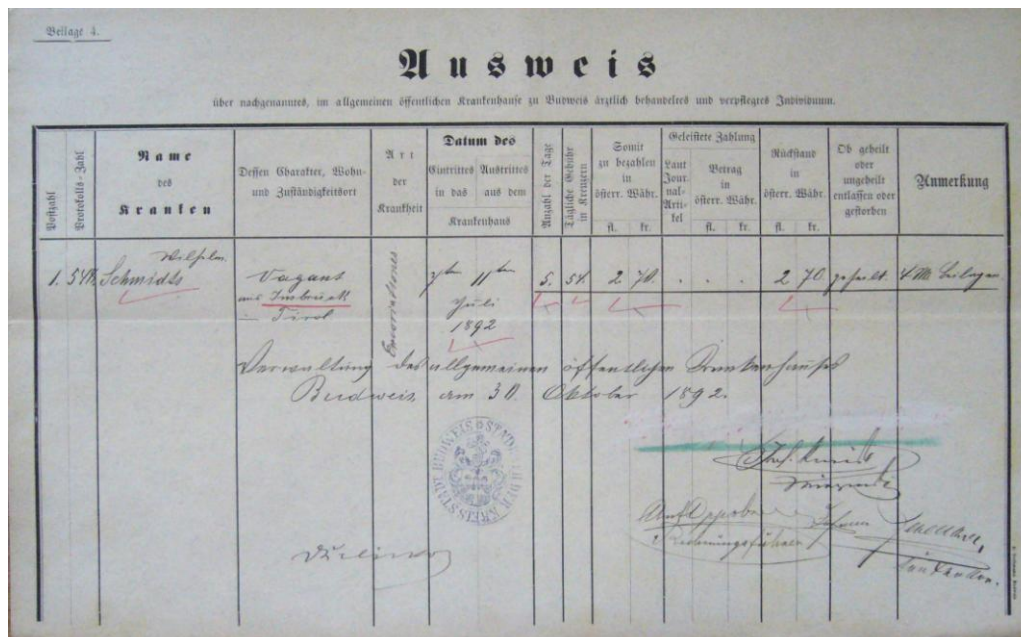 Beilage 4.
Ausweis
über nachgenanntes, im allgemeinen öffentlichen Krankenhause zu Budweis ärztlich behandeltes und verpflegtes Individuum.
Postzahl
Protokolls-Zahl
Name
des
Kranken
Dessen Charakter, Wohn-
und Zuständigkeitsort
Art
der
Krankheit
Datum des
Eintrittes
in das
Austrittes
aus dem
Krankenhaus
Anzahl der Tage
Tägliche Gebühr
in Kreuzern
Somit
zu bezahlen
in
österr. Währ.
fl. kr.
Geleistete Zahlung
Laut
Jour-
nal-
Arti-
kel
Betrag
in
österr. Währ.
fl. kr.
Rückstand
in
österr. Währ.
fl. kr.
Ob geheilt
oder
ungeheilt
entlassen oder
gestorben
Anmerkung
1.
Wilhelm
Schmidts
Vagant
aus Insbruck
in Tirol
Excoriationes
7ten 11ten
Juli
1892
5. 54. 2 70. . . . 2 70 geheilt. Beilagen
Verwaltung des allgemeinen öffentlichen Krankenhauses
Budweis, am 30. Oktober 1892.
BUDWEIS STADT DER KREISSTADT
Rechnungsführer
Johann